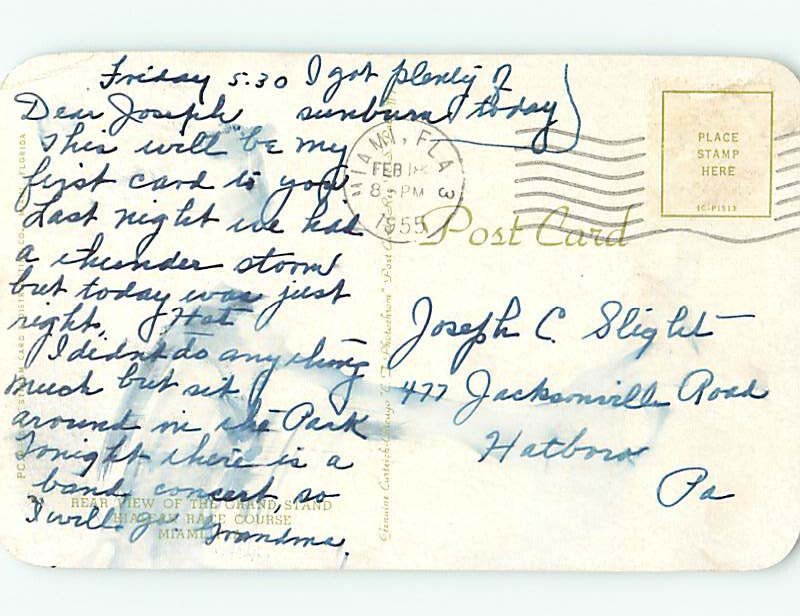 Friday 5.30 I got plenty of
Dear Joseph sunburn today
This will be my
first card to you
Last night we had
a thunder storm
but today was just
right, Hot
I didnt do anything
much but sit
around in the Park
Tonight there is a
band concert, so
I will go. Grandma.
REAR VIEW OF THE GRAND STAND
HIALEAH RACE COURSE
MIAMI
FLORIDA
Genuine Curteich-Chicago "C.T. Photochrom" Post Card
MIAMI, FLA
FEB 18
8 PM
1955
3
PLACE
STAMP
HERE
1C-P1513
Post Card
Joseph C. Slight
477 Jacksonville Road
Hatboro
Pa